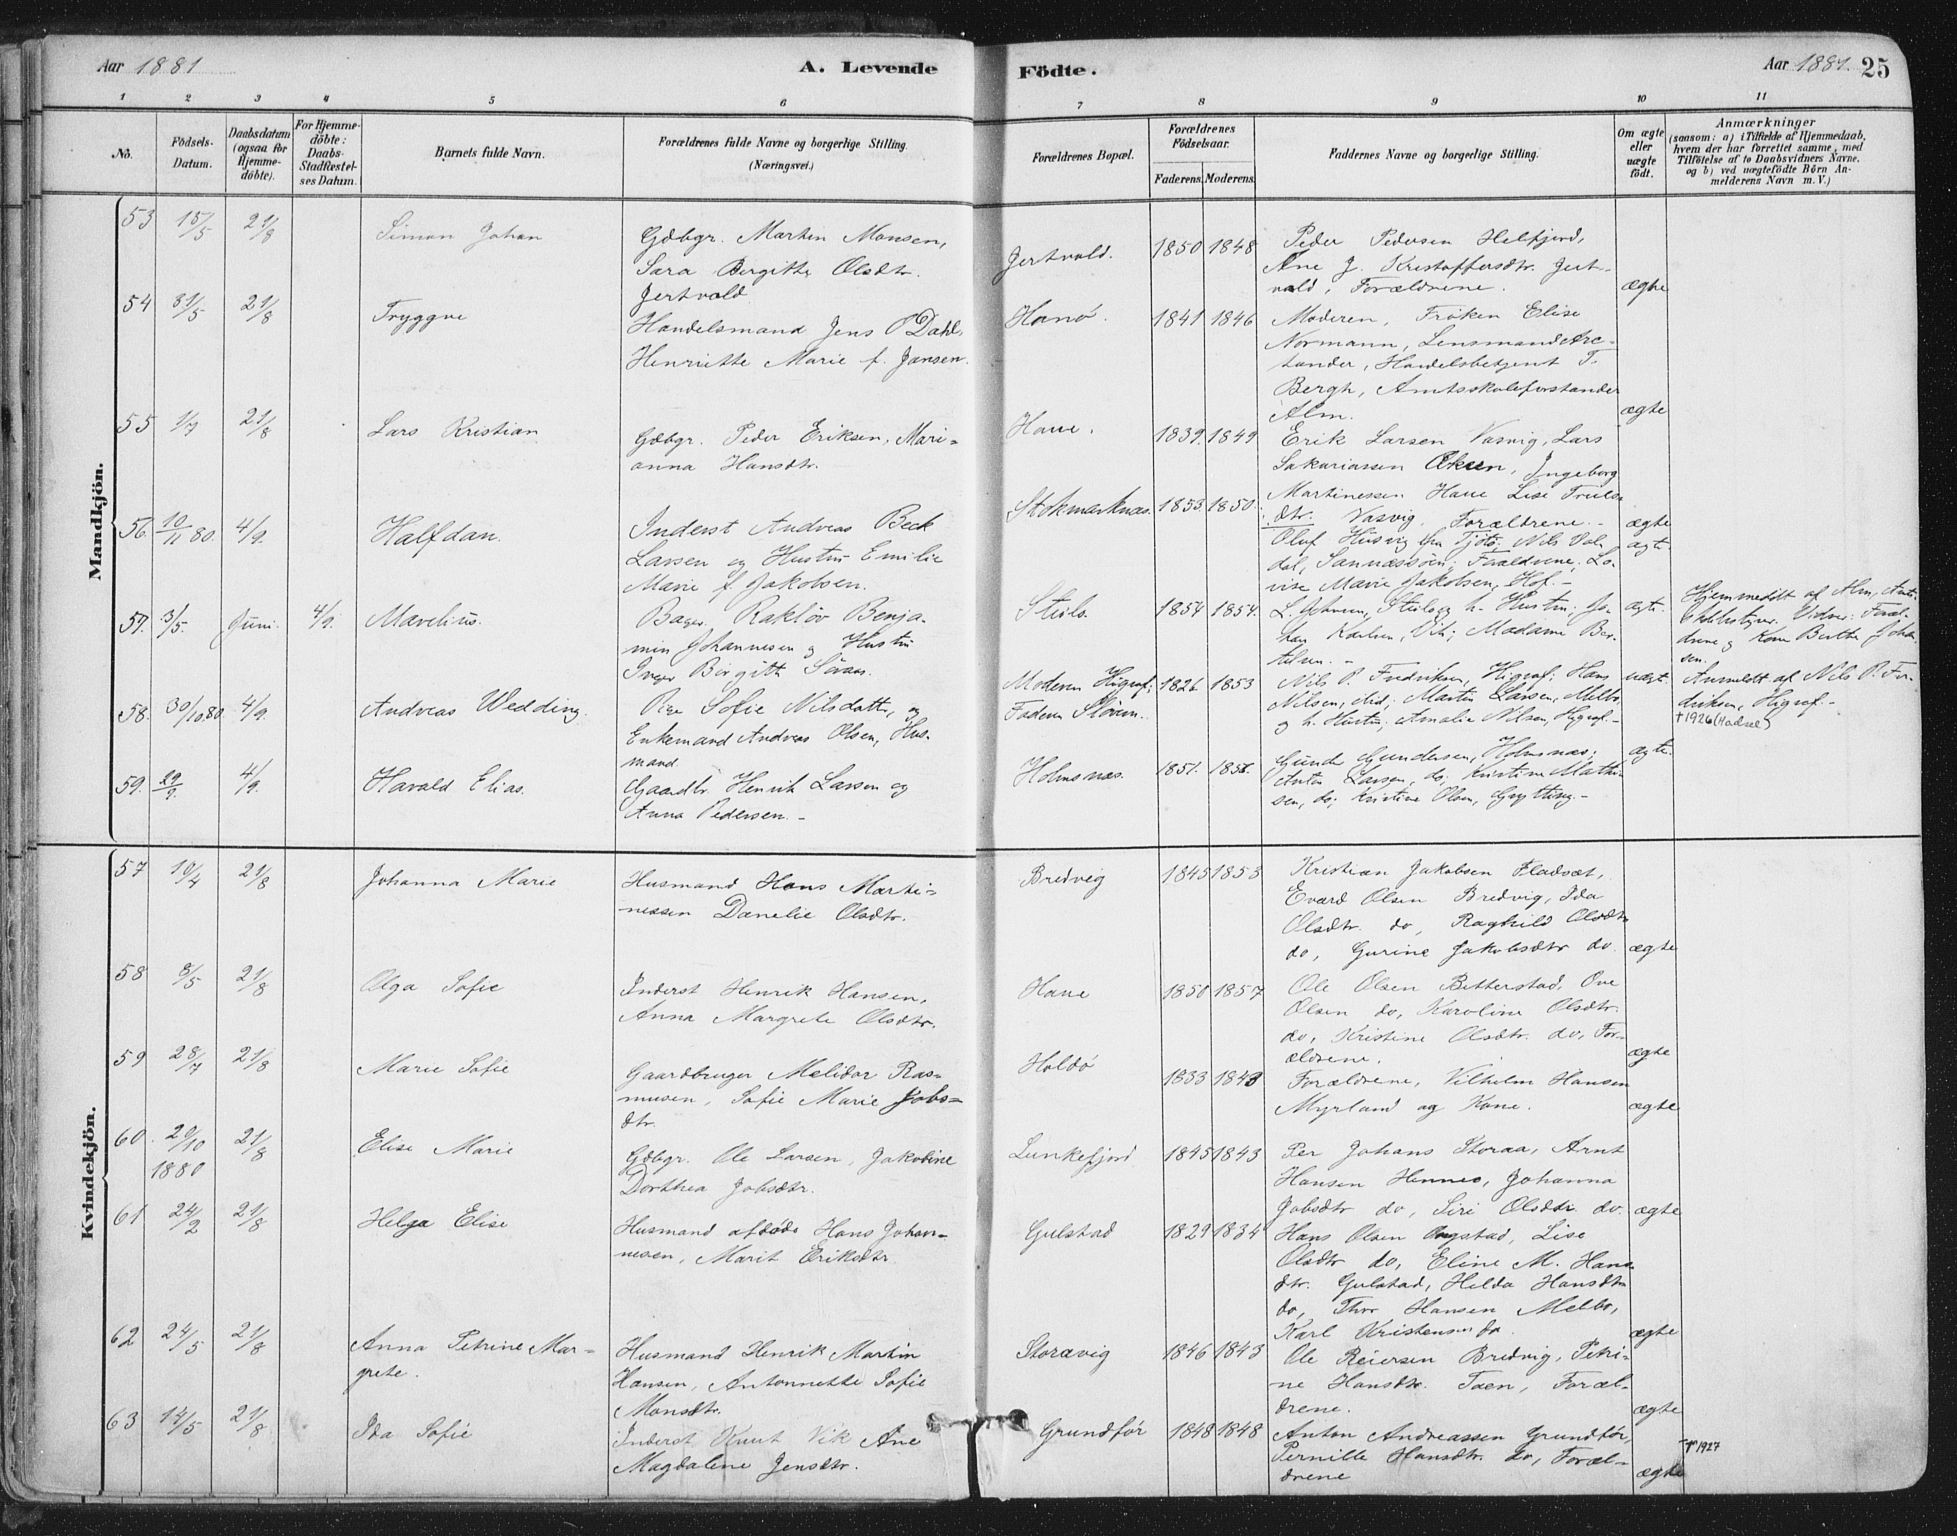 Aar 1881
A. Levende
Födte.
Aar 1881. 25
1 2 3 4 5 6 7 8 9 10 11
No.
Födsels-Datum.
Daabsdatum (ogsaa for Hjemme-döbte).
For Hjemme-döbte: Daabs-Stadfæstel-ses Datum.
Barnets fulde Navn.
Forældrenes fulde Navne og borgerlige Stilling. (Næringsvei.)
Forældrenes Bopæl.
Forældrenes Födselsaar.
Faderens. Moderens.
Faddernes Navne og borgerlige Stilling.
Om ægte eller uægte födt.
Anmærkninger
(saasom: a) i Tilfælde af Hjemmedaab,
hvem der har forrettet samme, med
Tilföielse af to Daabsvidners Navne,
og b) ved uægtefödte Börn An-
melderens Navn m. V.)
Mandkjön.
53 15/5 21/8 Simon Johan
Gdbgr. Morten Monsen,
Sara Bergitte Olsdtr.
Jertvold
Jertvold. 1850 1848
Peder Pedersen Helfjord,
Ane J. Kristoffersdtr. Jert-
vold, Forældrene. ægte
54 31/5 21/8 Tryggve
Handelsmand Jens O Dahl,
Henriette Marie f. Jansen.
Hanö. 1841 1846
Moderen, Fröken Elise
Normann, Lensmand Arc-
tander, Handelsbetjent T.
Bergh, Amtsskoleforstander
Alm. ægte
55 1/7 21/8 Lars Kristian
Gdbgr. Peder Eriksen, Mari-
anna Hansdtr.
Haue. 1839. 1849
Erik Larsen Vasvig, Lars
Sakariassen Oksen, Ingeborg
Martinessen Haue Lise Truls
dtr. Vasvig, Forældrene. - ægte
56. 10/11 80. 4/9. Halfdan.
Inderst Andreas Beck
Larsen og Hustru Emilie
Marie f. Jakobsen.
Stokmarknæs. 1853. 1850.
Oluf Husvig fra Tjötö, Nils
dal, Sannæssöen, Forældrene, Lo-
vise Marie Jakobsen, Hof. - ægte.
57. 3/5. Juni. 4/9. Marelius.
Bager Benja-
min Johannesen og Hustru
Inger Birgitte
1854 1854.
L. og h. Hustru; Jo-
han Karlsen, Vik; Madame Ber-
telsen. - ægte.
Hjemmedöbt af Alm,
Vidner: Foræl-
drene og Kone Berthe Johan
sen.
58. 30/10 80. 4/9. Andreas Wedding.
Pige Sofie Nilsdatter, og
Enkemand Andreas Olsen, Hus-
mand
Moderen Higraf;
Faderen
1826. 1853
Nils P. Fredriksen, Higraf; Hans
Nilsen, ibid; Martin Larsen, Melbo
og h. Hustru; Amalie Nilsen, Higraf. - uægt.
Anmeldt af Nils P. Fre-
driksen, Higraf. -
†1926 (Hadsel)
59. 29/9. 4/9. Harald Elias.
Gaardbr. Henrik Larsen og
Anna Pedersen. -
Holmsnæs. 1851. 1856.
Gunder Gundersen, Holmsnæs;
Anton Larsen, do; Kristine Mathi
sen, do; Kristine Olsen, Grytting. - ægte.
Kvindekjön.
57 10/4 21/8 Johanna Marie
Husmand Hans Marti-
nessen Danelie Olsdtr.
Bredvig 1845 1853
Kristian Jakobsen Fladsæt,
Evard Olsen Bredvig, Ida
Olsdtr. do, Raghild Olsdtr
do, Gurine Jakobsdtr do. ægte
58 8/5 21/8 Olga Sofie
Inderst Henrik Hansen,
Anna Margrete Olsdtr.
Haue 1850 1857
Ole Olsen Bitterstad, Ove
Olsen do, Karoline Olsdtr.
do, Kristine Olsdtr. do, For-
ældrene. ægte
59 28/7 21/8 Marie Sofie
Gaardbruger Melidor Ras-
mussen, Sofie Marie Jobs-
dtr.
Holdö 1833 1843
Forældrene, Vilhelm Hansen
Myrland og Kone. ægte
60. 29/10 1880 21/8 Elise Marie
Gdbgr. Ole Larsen, Jakobine
Dorthea Jobsdtr.
Lunkefjord 1845 1843
Per Johans Storaa, Arnt
Hansen Hennes, Johanna
Jobsdtr do, Siri Olsdtr do. ægte
61 24/2 21/8 Helga Elise
Husmand afdöde Hans Johan-
nesen, Marit Eriksdtr.
Gulstad 1829 1834
Hans Olsen Ongstad, Lise
Olsdtr do, Eline M. Hans
dtr. Gulstad, Hilda Hansdtr
do, Thor Hansen Melbo,
Karl Kristensen do. ægte
62 24/5 21/8 Anna Petrine Mar-
grete.
Husmand Henrik Martin
Hansen, Antonnette Sofie
Monsdtr.
Storavig 1846 1843
Ole Reiersen Bredvig, Petri-
ne Hansdtr. Taen, Foræl-
drene. ægte
63 14/5 21/8. Ida Sofie
Inderst Knut Vik Ane
Magdalene Jensdtr.
Grundför 1848 1848
Anton Andreassen Grundför,
Pernille Hansdtr. do, Foræl-
drene ægte
†1927